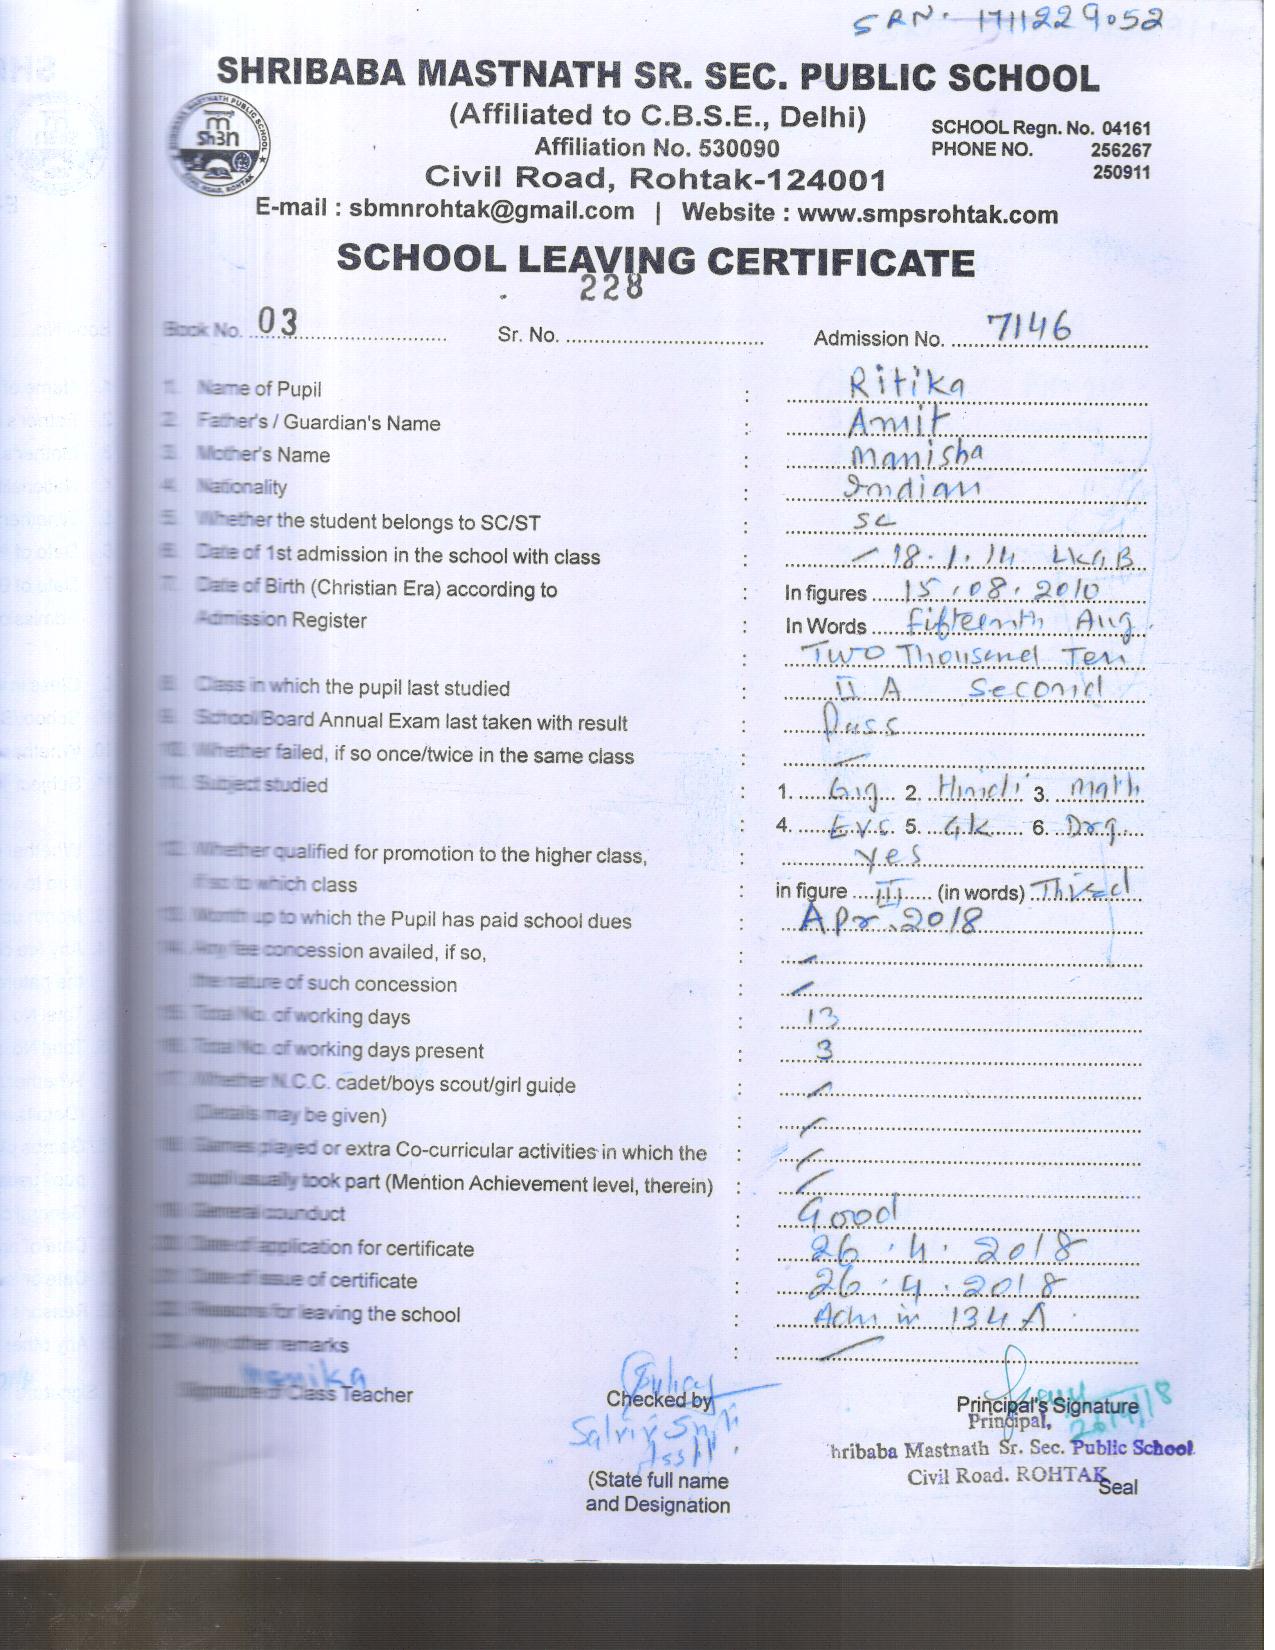 SRN. 1711229052
SHRIBABA MASTNATH SR. SEC. PUBLIC SCHOOL
(Affiliated to C.B.S.E., Delhi)
Affiliation No. 530090
SCHOOL Regn. No. 04161
PHONE NO. 256267
250911
Civil Road, Rohtak-124001
E-mail : sbmnrohtak@gmail.com | Website : www.smpsrohtak.com
SCHOOL LEAVING CERTIFICATE
228
Book No. 03 Sr. No. Admission No. 7146
1. Name of Pupil : Ritika
2. Father's / Guardian's Name : Amit
3. Mother's Name : Manisha
4. Nationality : Indian
5. Whether the student belongs to SC/ST : SC
6. Date of 1st admission in the school with class : 18.1.14 LKG B
7. Date of Birth (Christian Era) according to : In figures 15.08.2010
Admission Register : In Words Fifteenth Aug
: Two Thousend Ten
8. Class in which the pupil last studied : II A Second
9. School/Board Annual Exam last taken with result : Pass
10. Whether failed, if so once/twice in the same class :
11. Subject studied : 1. Eng 2. Hindi 3. Math
: 4. E.V.S. 5. G.K 6. Drg.
12. Whether qualified for promotion to the higher class, : Yes
if so to which class : in figure III (in words) Third
13. Month up to which the Pupil has paid school dues : Apr. 2018
14. Any fee concession availed, if so, :
the nature of such concession :
15. Total No. of working days : 13
16. Total No. of working days present : 3
17. Whether N.C.C. cadet/boys scout/girl guide :
(Details may be given) :
18. Games played or extra Co-curricular activities in which the :
pupil usually took part (Mention Achievement level, therein) :
19. General counduct : Good
20. Date of application for certificate : 26.4.2018
21. Date of issue of certificate : 26.4.2018
22. Reasons for leaving the school : Adm in 134 A
23. Any other remarks :
Monika
Signature of Class Teacher
Checked by
(State full name
and Designation
Principal's Signature
26/4/18
Principal,
hribaba Mastnath Sr. Sec. Public School
Civil Road. ROHTAK
Seal